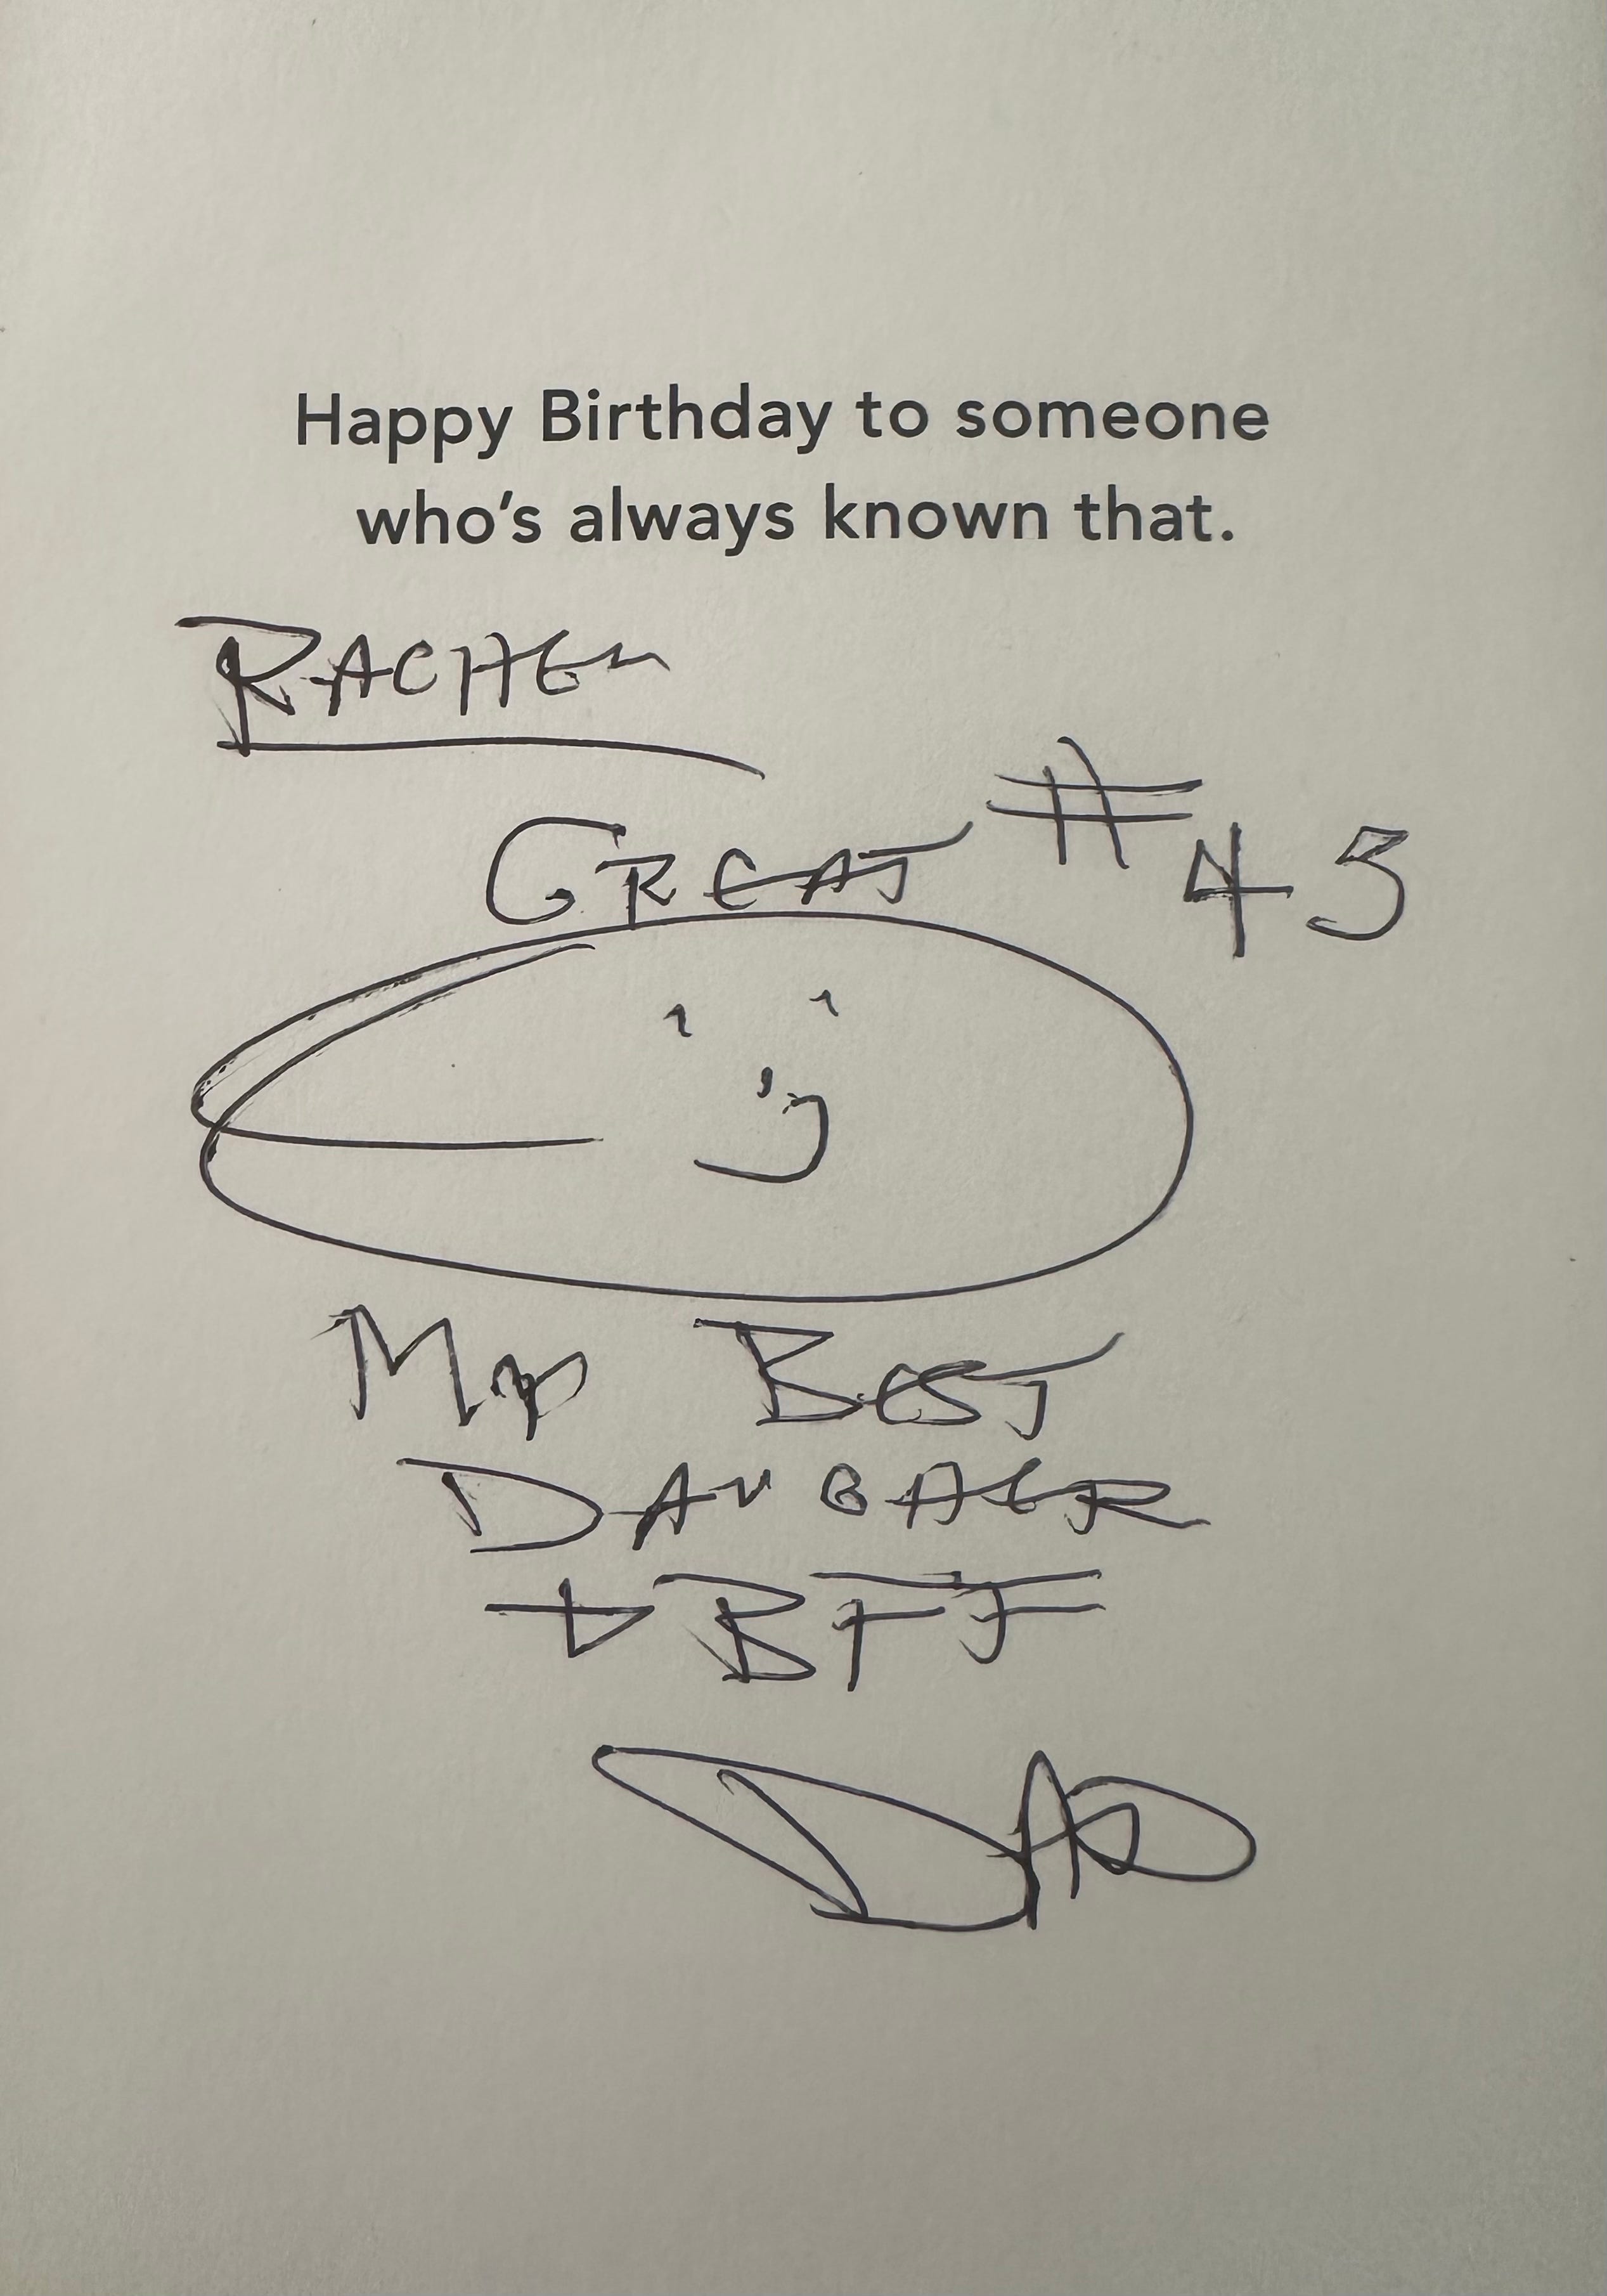 Happy Birthday to someone
who's always known that.
RACHEL
GREAT #45
My BEST
DAUGHTER
+ BFF
DAD